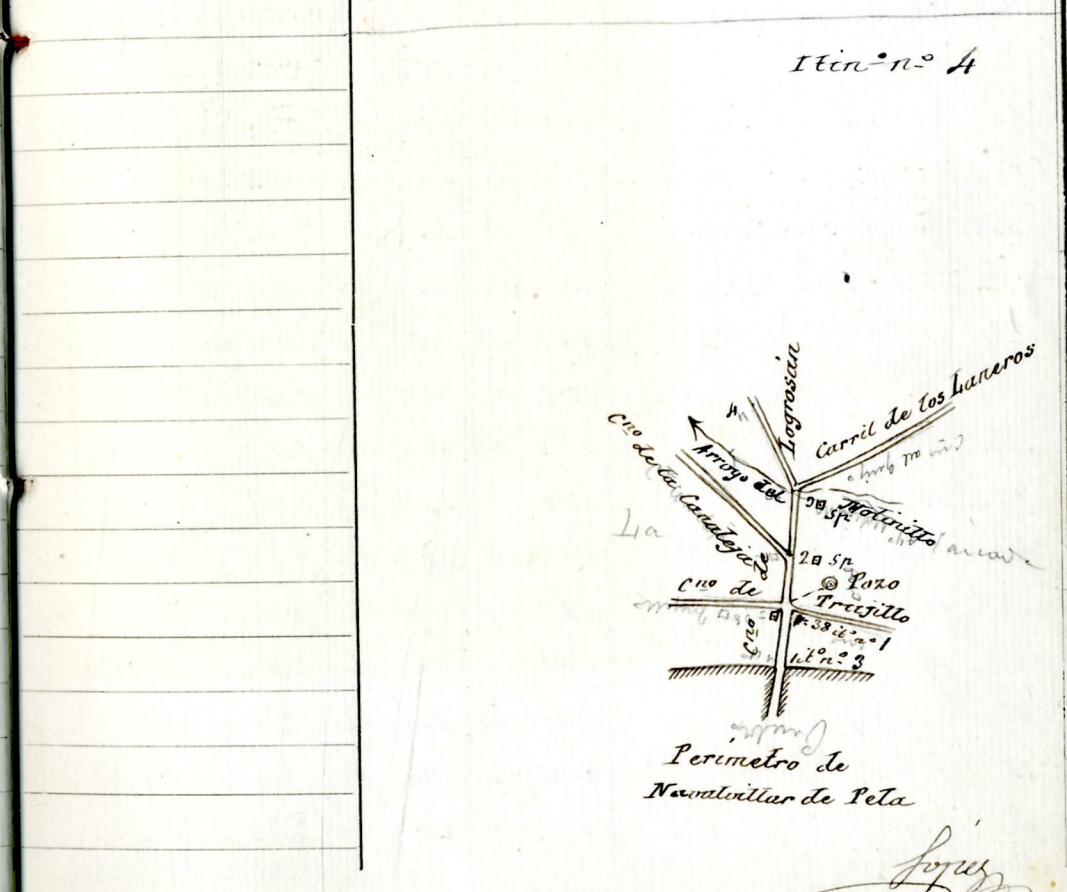 Itinº nº 4
Logrosán
Carril de los Laneros
4
Cno de la Canaleja
Arroyo del Molinillo
3 Sn
2 Sn
Pozo
Cno de Trujillo
Cno de
38 itº nº 1
1 itº nº 3
La
Perímetro de
Navalvillar de Pela
López